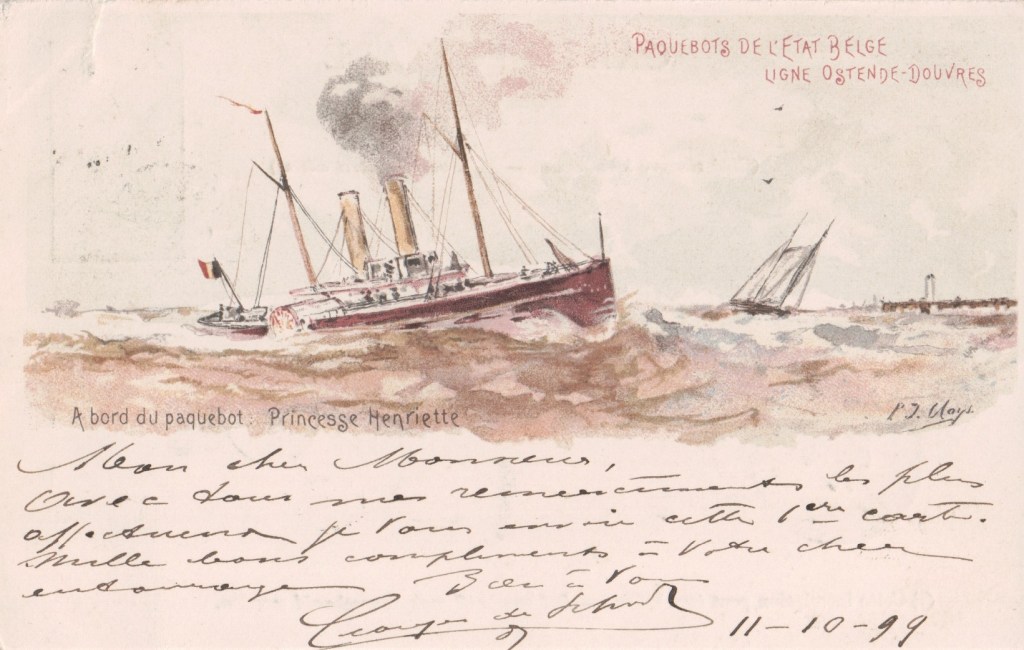 PAQUEBOTS DE L'ETAT BELGE
LIGNE OSTENDE-DOUVRES
A bord du paquebot: Princesse Henriette
Mon cher Monsieur,
avec tous mes remerciements les plus
affectueux je vous envoie cette 1ère carte.
Mille bons compliments à votre cher
entourage Bien à vous
Georges de
11-10-99